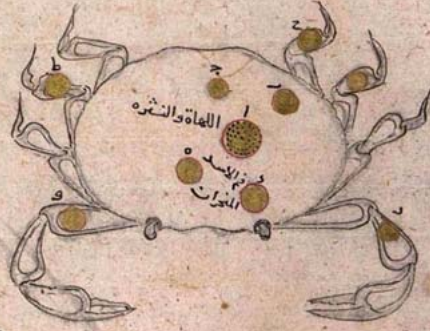 ح
ط
ج
ر
ا
اللهاة والنثره
ه
فم الاسد
المنخران
و